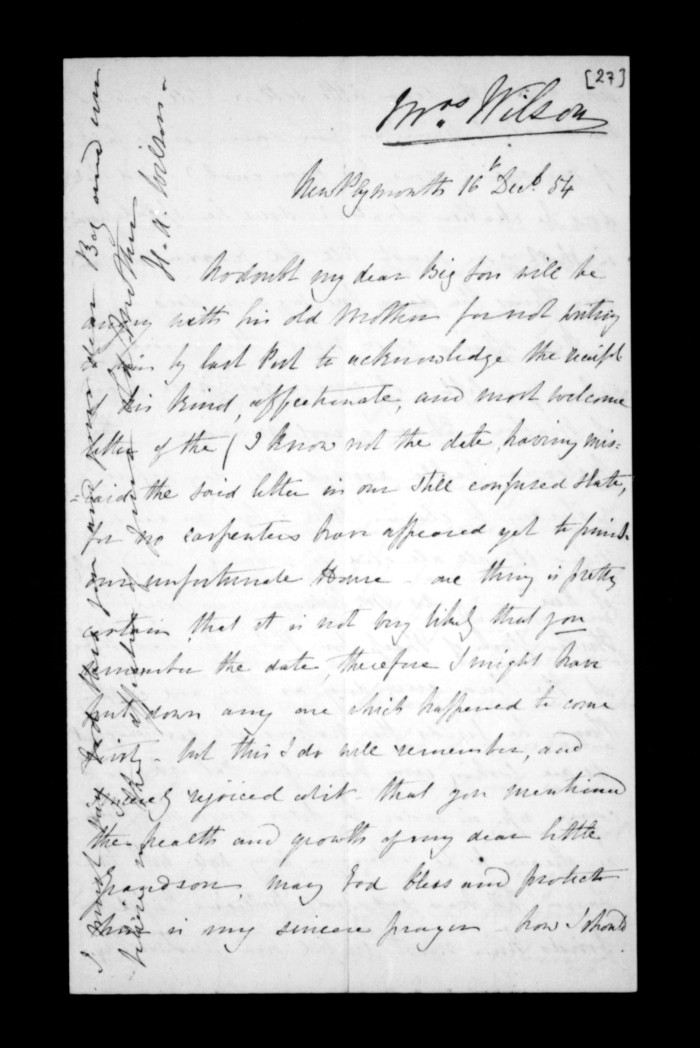 [27]
Mrs. Wilson
New Plymouth 16t Decb. 54
No doubt my dear Big Son will be
angry with his old Mother for not writing
to him by last Post to acknowledge the receipt
of his kind, affectionate, and most welcome
letter of the ( I know not the date, having mis=
=laid the said letter in our still confused state,
for no carpenters have appeared yet to finish
our unfortunate House - one thing is pretty
certain, that it is not very likely that you
remember the date, therefore I might have
put down any one which happened to come
first - but this I do well remember, and
sincerely rejoiced at it - that you mentioned
the health and growth of my dear little
Grandson may God bless and protect
him is my sincere prayer how I should
I must say God bless you and your dear Boy and
believe me the affectionate Mother
H. A. Wilson -